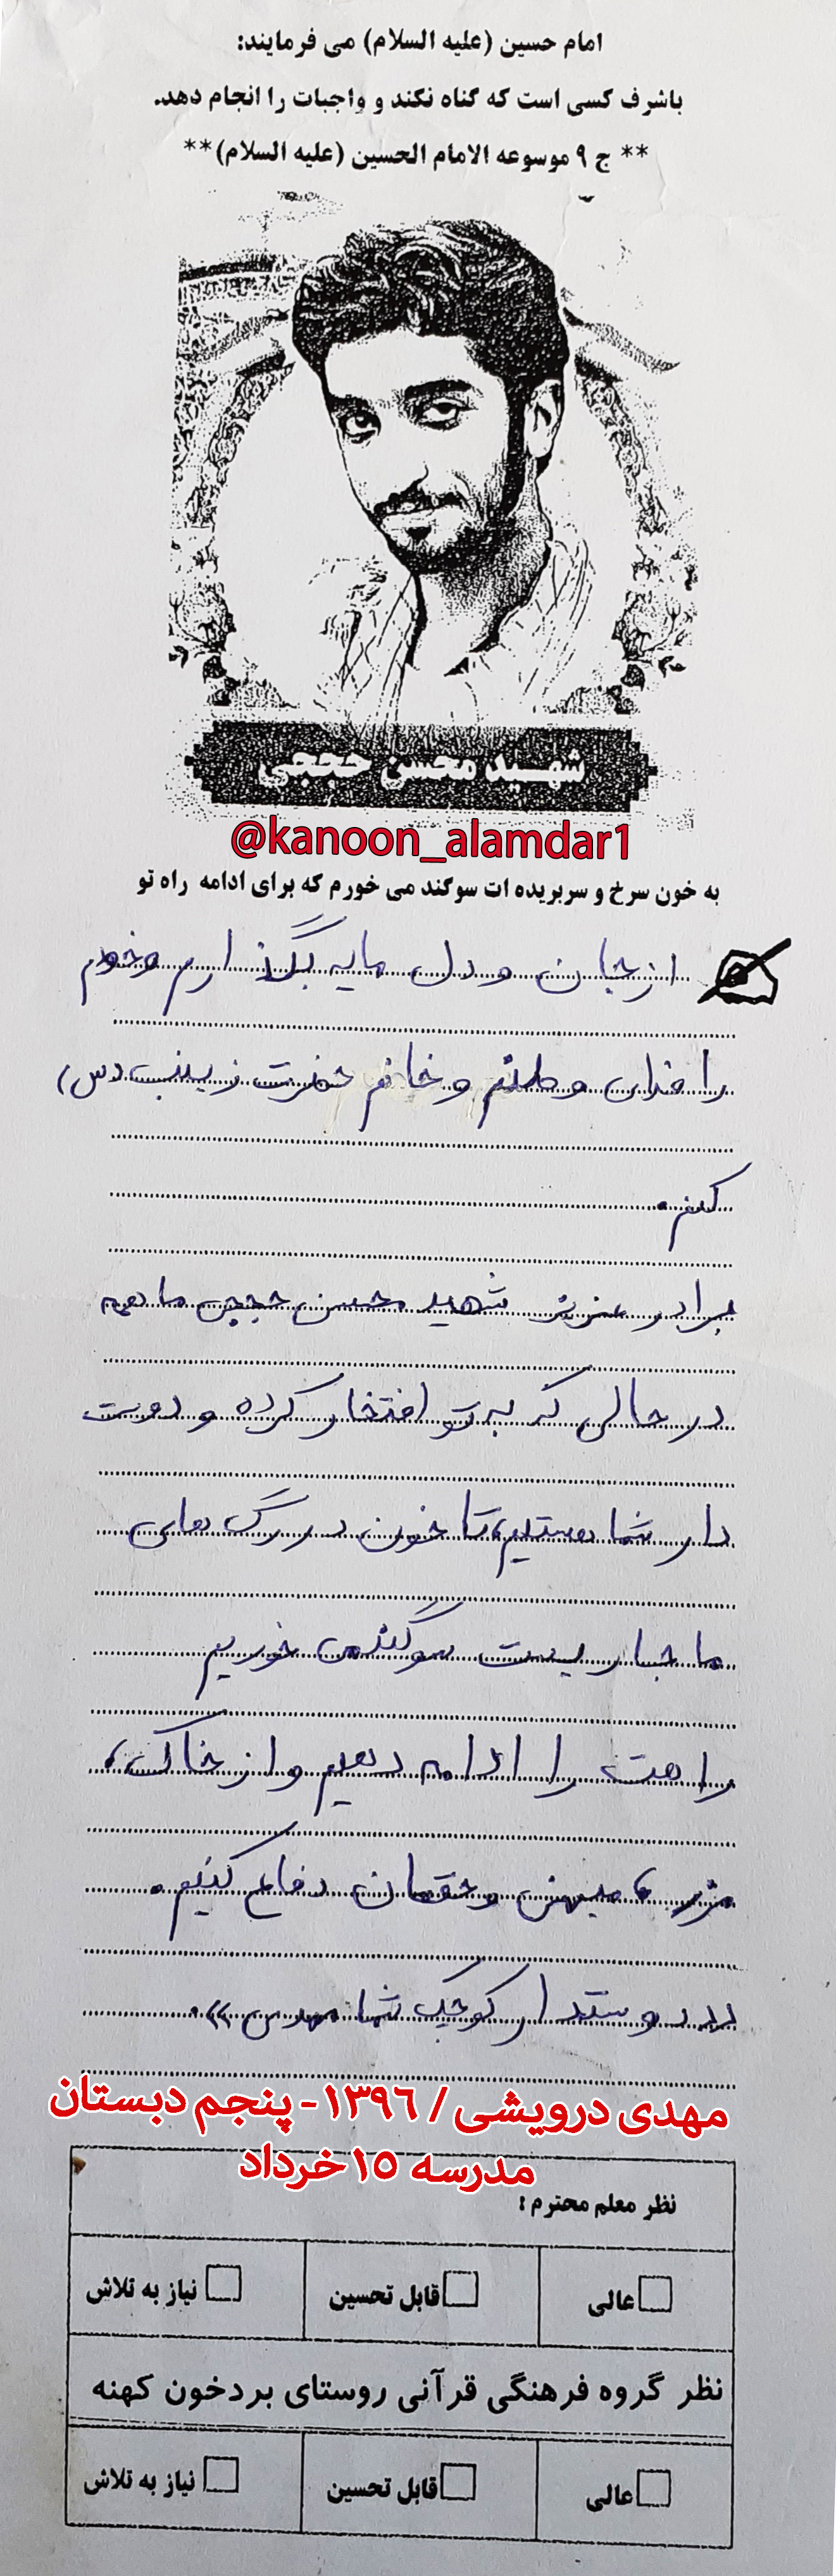 امام حسین (علیه السلام) می فرمایند:
باشرف کسی است که گناه نکند و واجبات را انجام دهد.
** ج ۹ موسوعه الامام الحسین (علیه السلام)**
شهید محسن حججی
@kanoon_alamdar1
به خون سرخ و سربریده ات سوگند می خورم که برای ادامه راه تو
از جان و دل مایه بگذارم و خودم
را فدای وطنم و خانم حضرت زینب (س)
کنم.
برادر عزیز شهید محسن حججی ما همه
در حالی که به تو افتخار کرده و دوست
دار شما هستیم، تا خون در رگ های
ما جاریست سوگند می خوریم
راهت را ادامه دهیم و از خاک،
مرز، میهن و حقمان دفاع کنیم.
«دوستدار کوچک شما مهدی».
مهدی درویشی / ۱۳۹۶ - پنجم دبستان
مدرسه ۱۵ خرداد
نظر معلم محترم:
عالی قابل تحسین نیاز به تلاش
نظر گروه فرهنگی قرآنی روستای بردخون کهنه
عالی قابل تحسین نیاز به تلاش